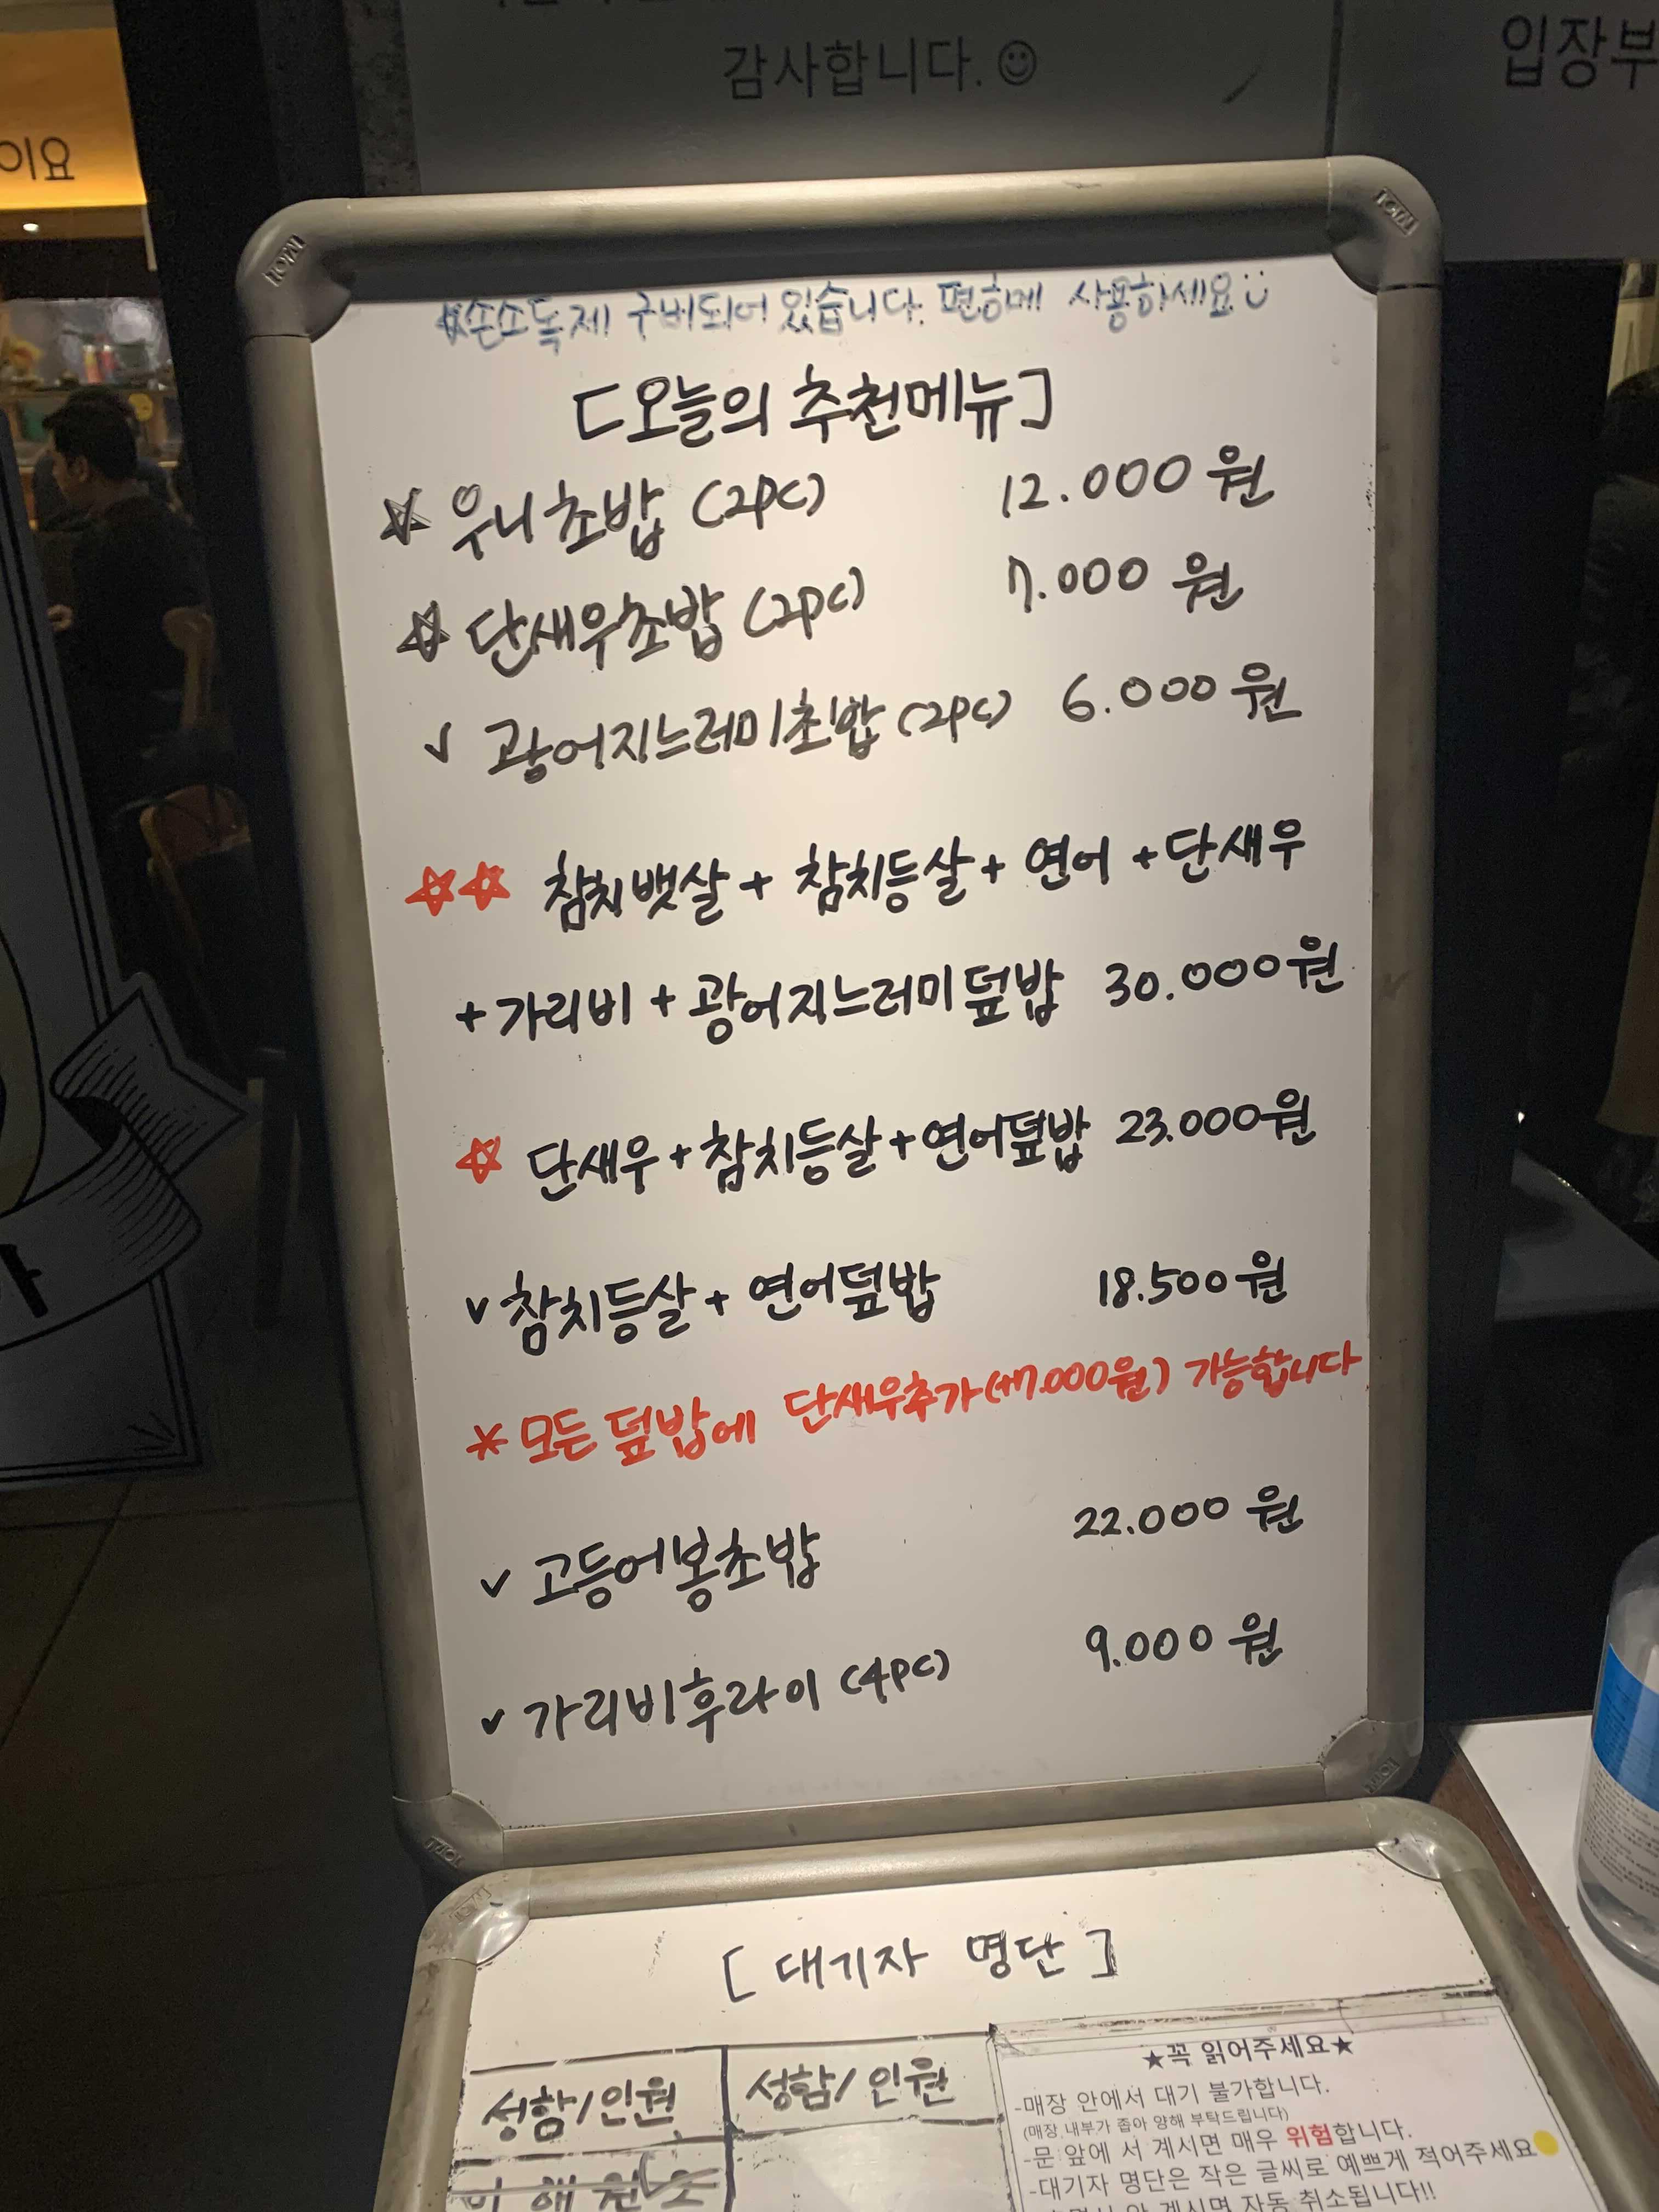 감사합니다.☺
입장부
이요
손소독제 구비되어 있습니다. 편하게 사용하세요
[오늘의 추천메뉴]
☆ 우니초밥 (2pc) 12.000원
☆ 단새우초밥 (2pc) 7.000원
✓ 광어지느러미초밥 (2pc) 6.000원
☆☆ 참치뱃살 + 참치등살 + 연어 + 단새우
+ 가리비 + 광어지느러미덮밥 30.000원
☆ 단새우 + 참치등살 + 연어덮밥 23.000원
✓ 참치등살 + 연어덮밥 18.500원
* 모든 덮밥에 단새우추가(+7.000원) 가능합니다
✓ 고등어봉초밥 22.000원
✓ 가리비후라이 (4pc) 9.000원
[ 대기자 명단 ]
성함/인원 성함/인원
★꼭 읽어주세요★
-매장 안에서 대기 불가합니다.
(매장 내부가 좁아 양해 부탁드립니다)
-문 앞에 서 계시면 매우 위험합니다.
-대기자 명단은 작은 글씨로 예쁘게 적어주세요
안 계시면 자동 취소됩니다!!